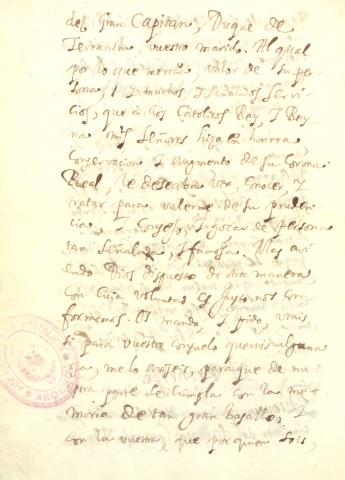 del Gran Capitan, Duque de
Terranova vuestro marido. Al qual
por lo que merecia valor de su per
sona, I muchos I señalados servi
cios, que a los Catolicos Rey, I Rey
na mis señores hizo en honrra
Conservacion I augmento de su Corona
Real, le deseaba ver, Conocer, I
tratar para valerme de su pruden
cia, Consejo, I gozar de persona
tan señalada, I famosa. Mas avi
endo Dios dispuesto de otra manera
con cuia voluntad es justo nos con
formemos. Os mando, I pido, mireis
si para vuestro consuelo quereis alguna
cosa, me lo aviseis, para que de nu
estra parte se cumpla con la me
moria de tan gran basallo, I
con la vuestra, que por quien sois,